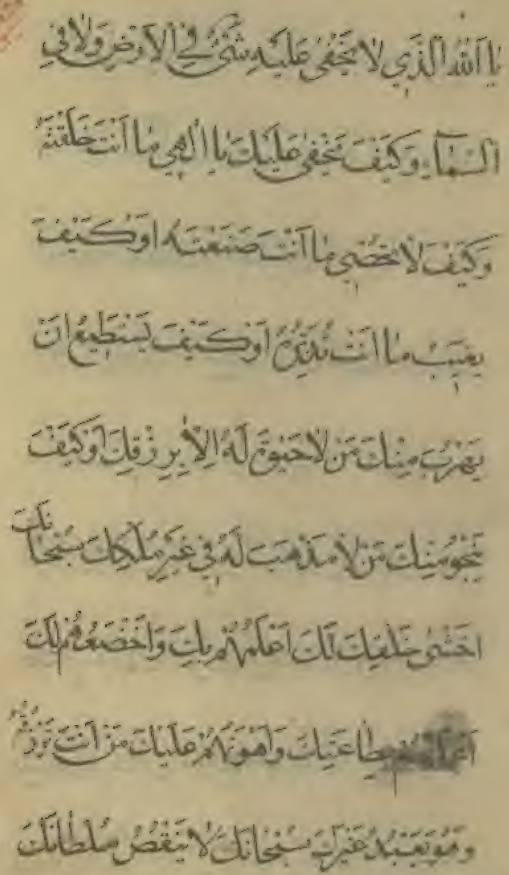 يا الله الذي لا يخفى عليه شئ في الأرض ولا في
السماء وكيف يخفى عليك يا الهي ما انت خلقته
وكيف لا تحصي ما انت صنعته او كيف
يغيب ما انت تدبره او كيف يستطيع ان
يهرب منك من لا حيوة له الا برزقك او كيف
ينجو منك من لا مذهب له في غير ملكك سبحانك
اخشى خلقك لك اعلمهم بك واخضعهم لك
بطاعتك واهونهم عليك من انت ترزقه
وهو يعبد غيرك سبحانك لا ينقص سلطانك